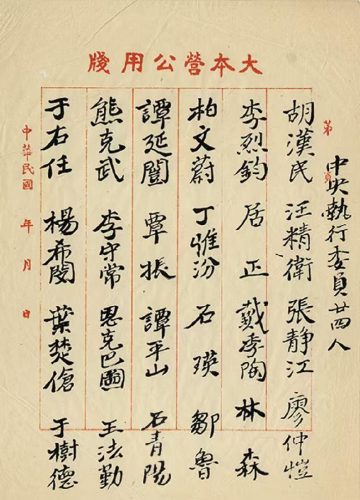 大本營公用牋
第 頁
中央執行委員廿四人
胡漢民 汪精衛 張靜江 廖仲愷
李烈鈞 居正 戴季陶 林森
柏文蔚 丁惟汾 石瑛 鄒魯
譚延闓 覃振 譚平山 石青陽
熊克武 李守常 恩克巴圖 王法勤
于右任 楊希閔 葉楚傖 于樹德
中華民國 年 月 日